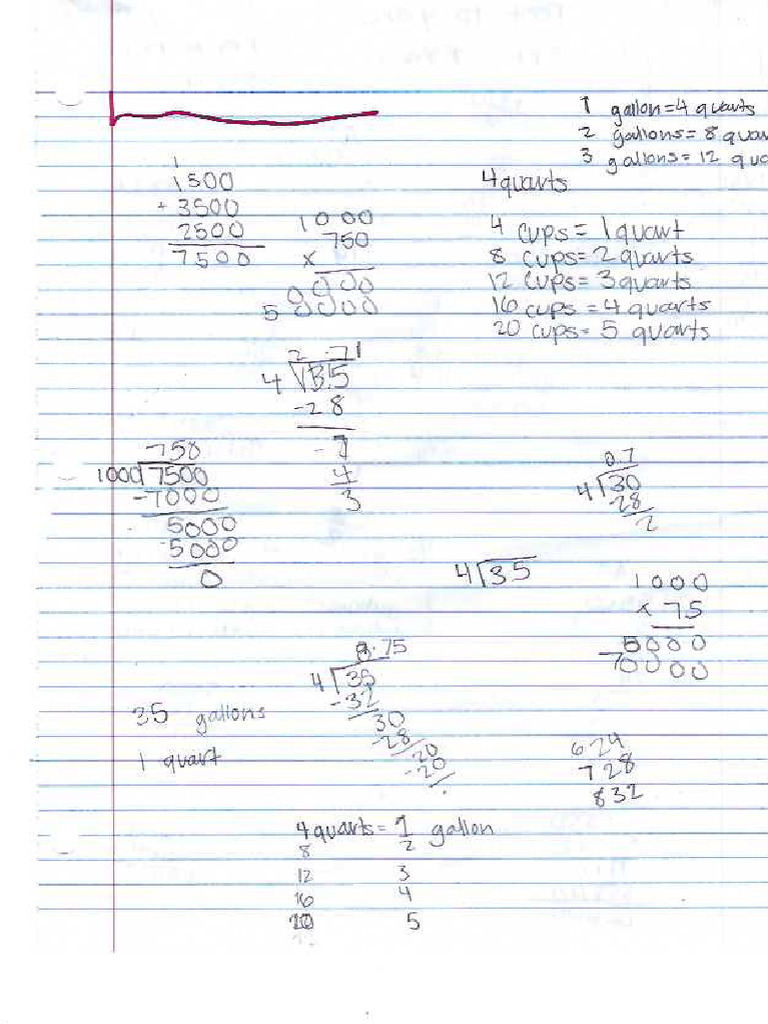 1 gallon=4 quarts
2 gallons= 8 quar
3 gallons= 12 quo
4quarts
4 cups= 1quart
8 cups= 2 quarts
12 cups= 3quarts
16 cups =4 quarts
20 cups= 5 quarts
1
1500
+ 3500
2500
7500
1000
750
x
0000
50000
2.71
4 √13.5
-28
-7
4
3
758
1000 √7500
-7000
5000
5000
0
0.7
4 √30
28
2
4 √35
1000
x 75
5000
70000
8.75
4 √35
-32
30
-28/20
-20/.
35 gallons
1 quart
624
728
832
4quarts= 1 gallon
8 2
12 3
16 4
20 5